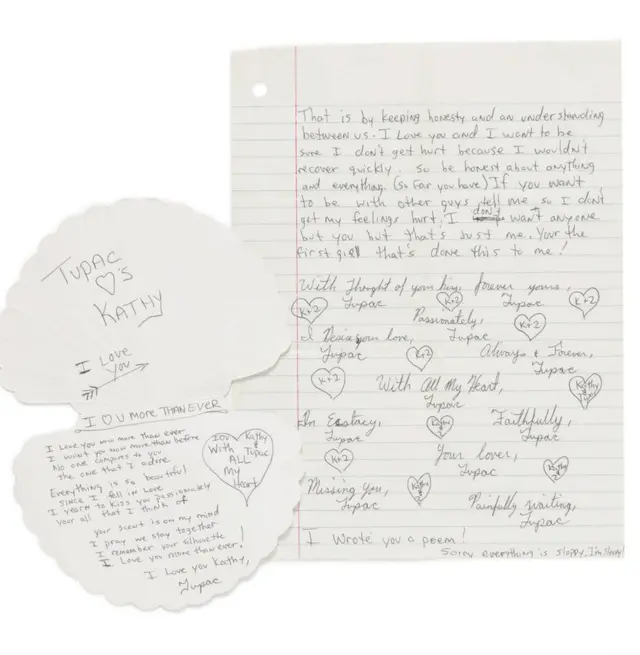 TUPAC
♡'S
KATHY
I Love
you
I ♡ U MORE THAN EVER
I Love you now more than ever
I want you now more than before
No one compares to you
the one that I adore
Everything is so beautiful
since I fell in Love
I yearn to kiss you passionately
your all that I think of
your scent is on my mind
I pray we stay together
I remember your silhouette
I Love you more than ever!
I love you Kathy,
Tupac
Kathy
&
Tupac
With
ALL
My
Heart
That is by keeping honesty and an understanding
between us. I Love you and I want to be
sure I don't get hurt because I wouldn't
recover quickly. So be honest about anything
and everything. (so far you have) If you want
to be with other guys tell me so I don't
get my feelings hurt. I don't want anyone
but you but that's Just me. Your the
first girl that's done this to me!
With Thought of your kiss, forever yours,
Tupac Tupac
K+2 K+2 K+2
Passionately,
Tupac
K+2
I Desire your love,
Tupac
K+2
Always & Forever,
Tupac
K+2
With All My Heart,
Tupac
Kathy
Tupac
In Ecstacy,
Tupac
Faithfully,
Tupac
K+2
Your lover,
Tupac
Missing You,
Tupac
Painfully waiting,
Tupac
I Wrote you a poem!
Sorry everything is sloppy. I'm sleepy!